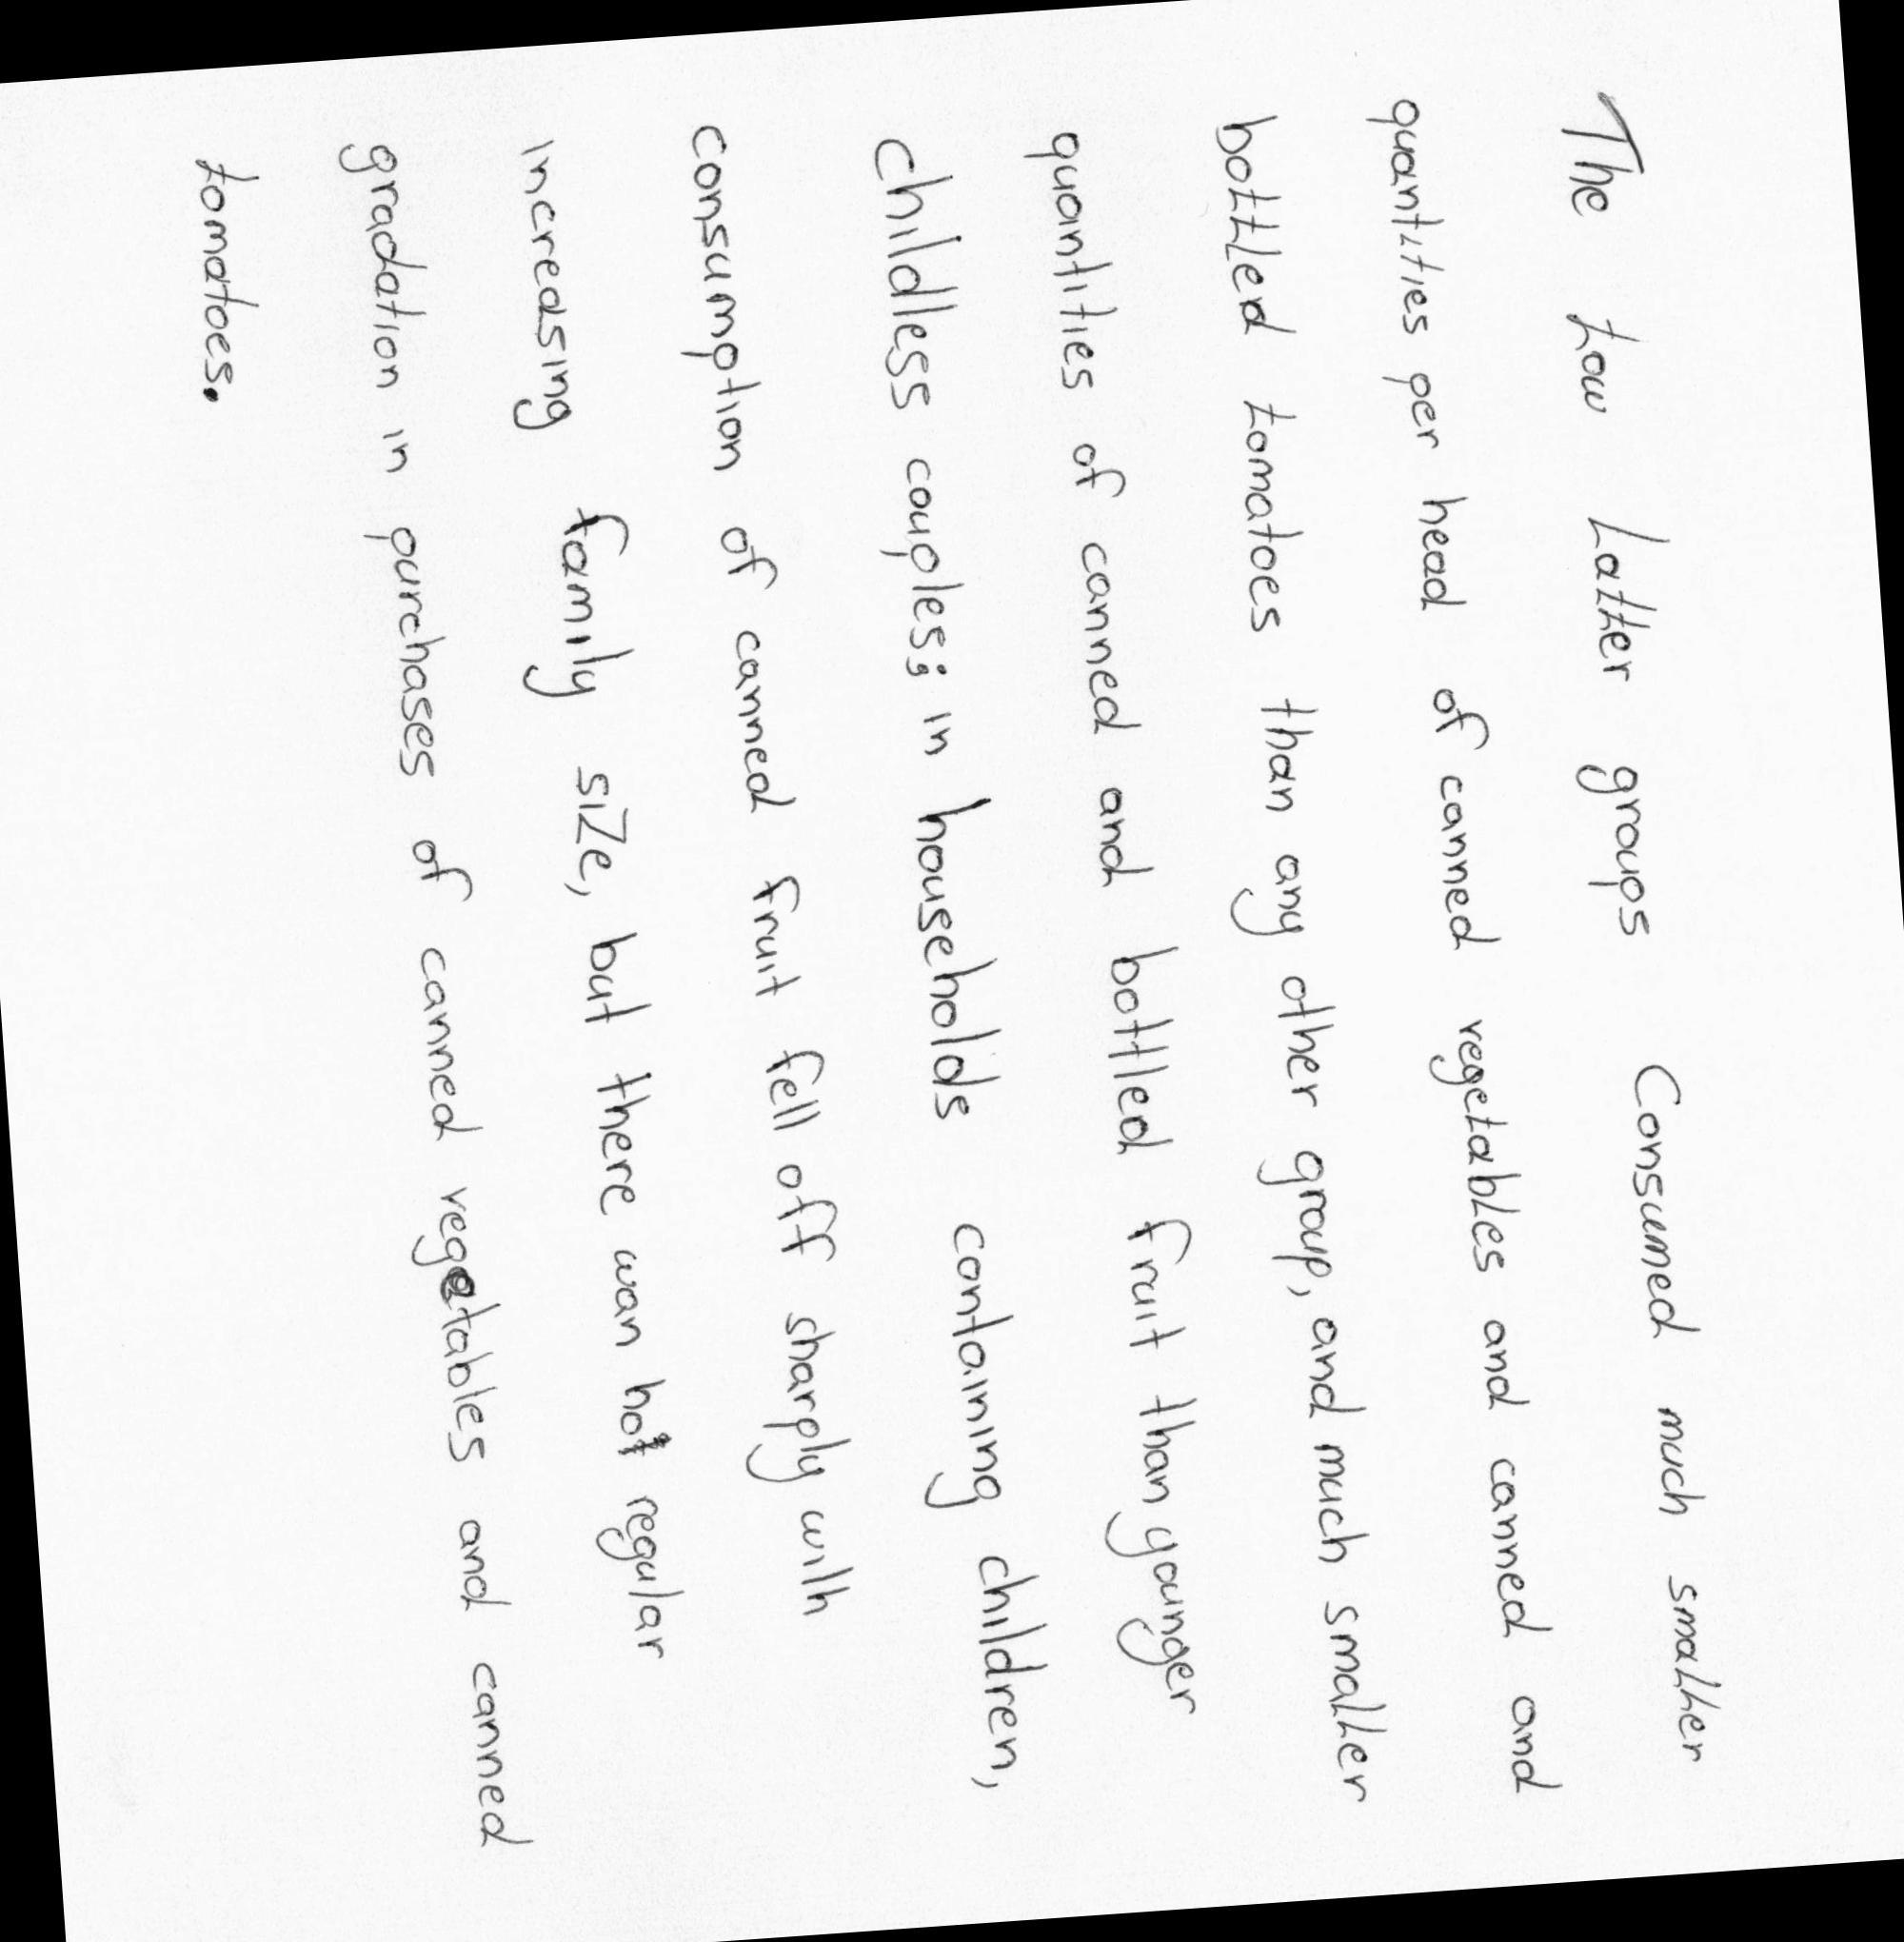 The tow latter groups Consumed much smaller
quantities per head of canned vegetables and canned and
bottled tomatoes than any other group, and much smaller
quantities of canned and bottled fruit than younger
childless couples; in households containing children,
consumption of canned fruit fell off sharply with
increasing family size, but there wan not regular
gradation in purchases of canned vegetables and canned
tomatoes.